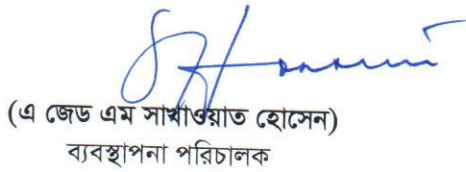 (এ জেড এম সাখাওয়াত হোসেন)
ব্যবস্থাপনা পরিচালক